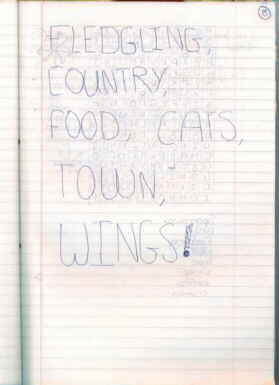 FLEDGLING,
COUNTRY,
FOOD, CATS,
TOWN,
WINGS!